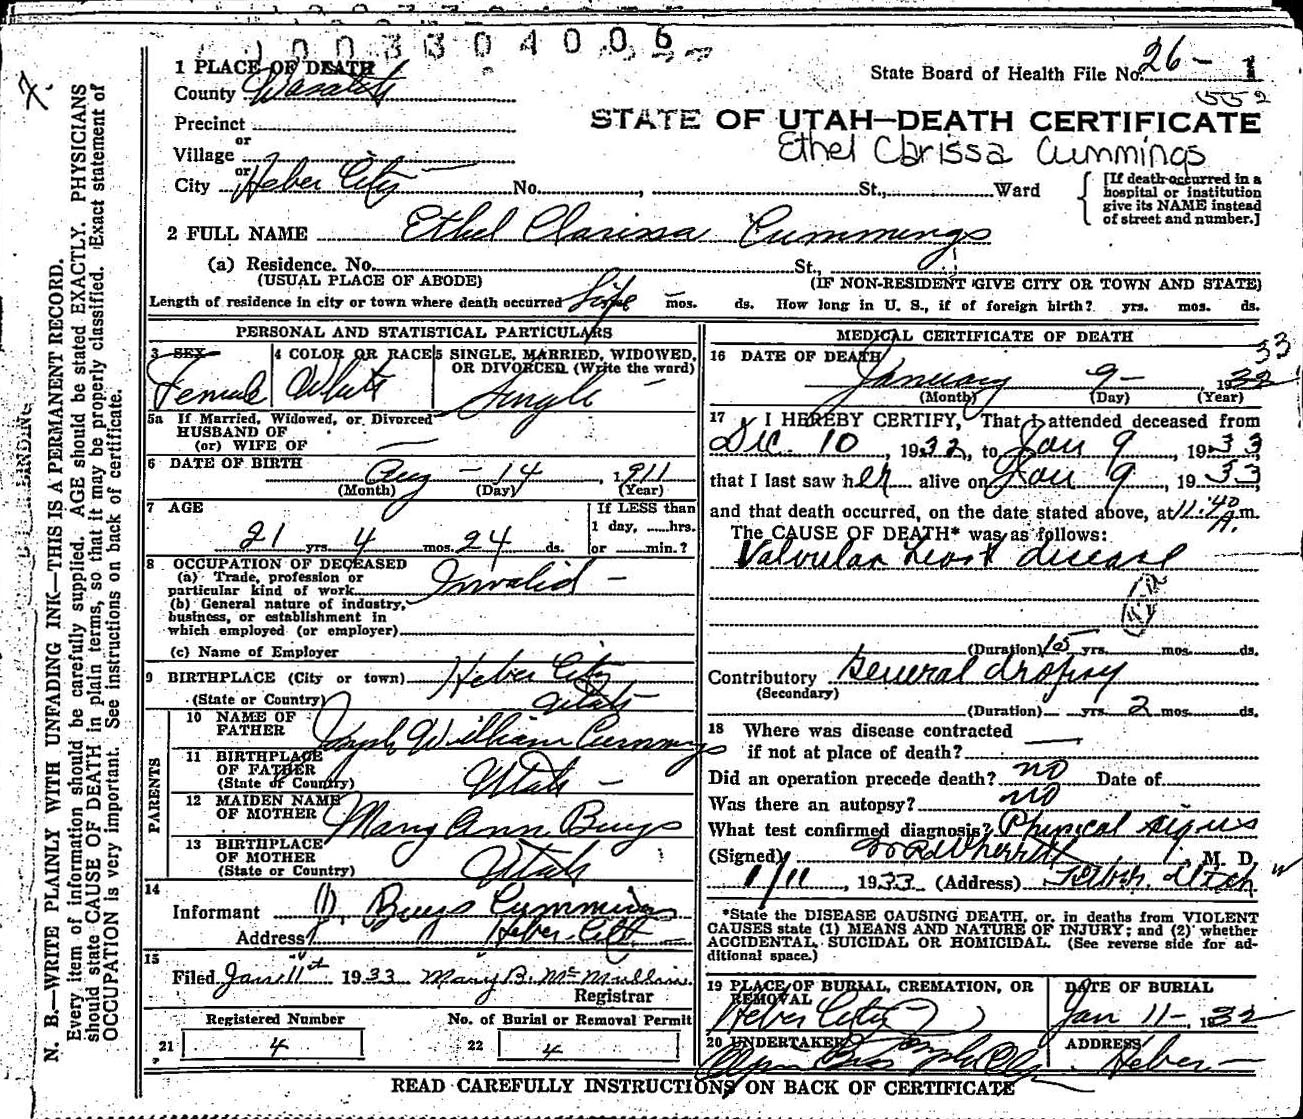 1003304006
State Board of Health File No. 26-
552
1 PLACE OF DEATH
County Wasatch
STATE OF UTAH—DEATH CERTIFICATE
Precinct
Ethel Clarissa Cummings
or
Village
or
City Heber City No. , St., Ward
[If death occurred in a
hospital or institution
give its NAME instead
of street and number.]
2 FULL NAME Ethel Clarissa Cummings
(a) Residence. No. St.,
(USUAL PLACE OF ABODE) (IF NON-RESIDENT GIVE CITY OR TOWN AND STATE)
Length of residence in city or town where death occurred Life mos. ds. How long in U. S., if of foreign birth? yrs. mos. ds.
PERSONAL AND STATISTICAL PARTICULARS
3 SEX
Female
4 COLOR OR RACE
White
5 SINGLE, MARRIED, WIDOWED,
OR DIVORCED (Write the word)
Single
5a If Married, Widowed, or Divorced
HUSBAND OF
(or) WIFE OF
6 DATE OF BIRTH
Aug - 14, 1911
(Month) (Day) (Year)
7 AGE
21 yrs. 4 mos. 24 ds.
If LESS than
1 day, hrs.
or min.?
8 OCCUPATION OF DECEASED
(a) Trade, profession or
particular kind of work Invalid -
(b) General nature of industry,
business, or establishment in
which employed (or employer)
(c) Name of Employer
9 BIRTHPLACE (City or town) Heber City
(State or Country) Utah
PARENTS
10 NAME OF
FATHER Joseph William Cummings
11 BIRTHPLACE
OF FATHER
(State or Country) Utah -
12 MAIDEN NAME
OF MOTHER Mary Ann Buys
13 BIRTHPLACE
OF MOTHER
(State or Country) Utah
14
Informant Buys Cummings
Address Heber City
15
Filed Jan 11th 1933 Mary B. McMullin
Registrar
Registered Number No. of Burial or Removal Permit
21 4 22 4
MEDICAL CERTIFICATE OF DEATH
16 DATE OF DEATH 33
January 9- , 1932
(Month) (Day) (Year)
17 I HEREBY CERTIFY, That I attended deceased from
Dec. 10, 1932, to Jan 9, 1933,
that I last saw her alive on Jan 9, 1933,
and that death occurred, on the date stated above, at 11:40 A.m.
The CAUSE OF DEATH* was as follows:
Valvular heart disease
(Duration) 15 yrs. mos. ds.
Contributory General dropsy
(Secondary)
(Duration) yrs. 2 mos. ds.
18 Where was disease contracted
if not at place of death?
Did an operation precede death? no Date of
Was there an autopsy? no
What test confirmed diagnosis? Physical signs
(Signed) Wherritt M. D.
1/11, 1933 (Address) Utah
*State the DISEASE CAUSING DEATH, or, in deaths from VIOLENT
CAUSES state (1) MEANS AND NATURE OF INJURY; and (2) whether
ACCIDENTAL, SUICIDAL OR HOMICIDAL. (See reverse side for ad-
ditional space.)
19 PLACE OF BURIAL, CREMATION, OR
REMOVAL
Heber City
DATE OF BURIAL
Jan 11-, 1932
20 UNDERTAKER
ADDRESS
Heber-
READ CAREFULLY INSTRUCTIONS ON BACK OF CERTIFICATE
N. B.—WRITE PLAINLY WITH UNFADING INK—THIS IS A PERMANENT RECORD.
Every item of information should be carefully supplied. AGE should be stated EXACTLY. PHYSICIANS
should state CAUSE OF DEATH in plain terms, so that it may be properly classified. Exact statement of
OCCUPATION is very important. See instructions on back of certificate.